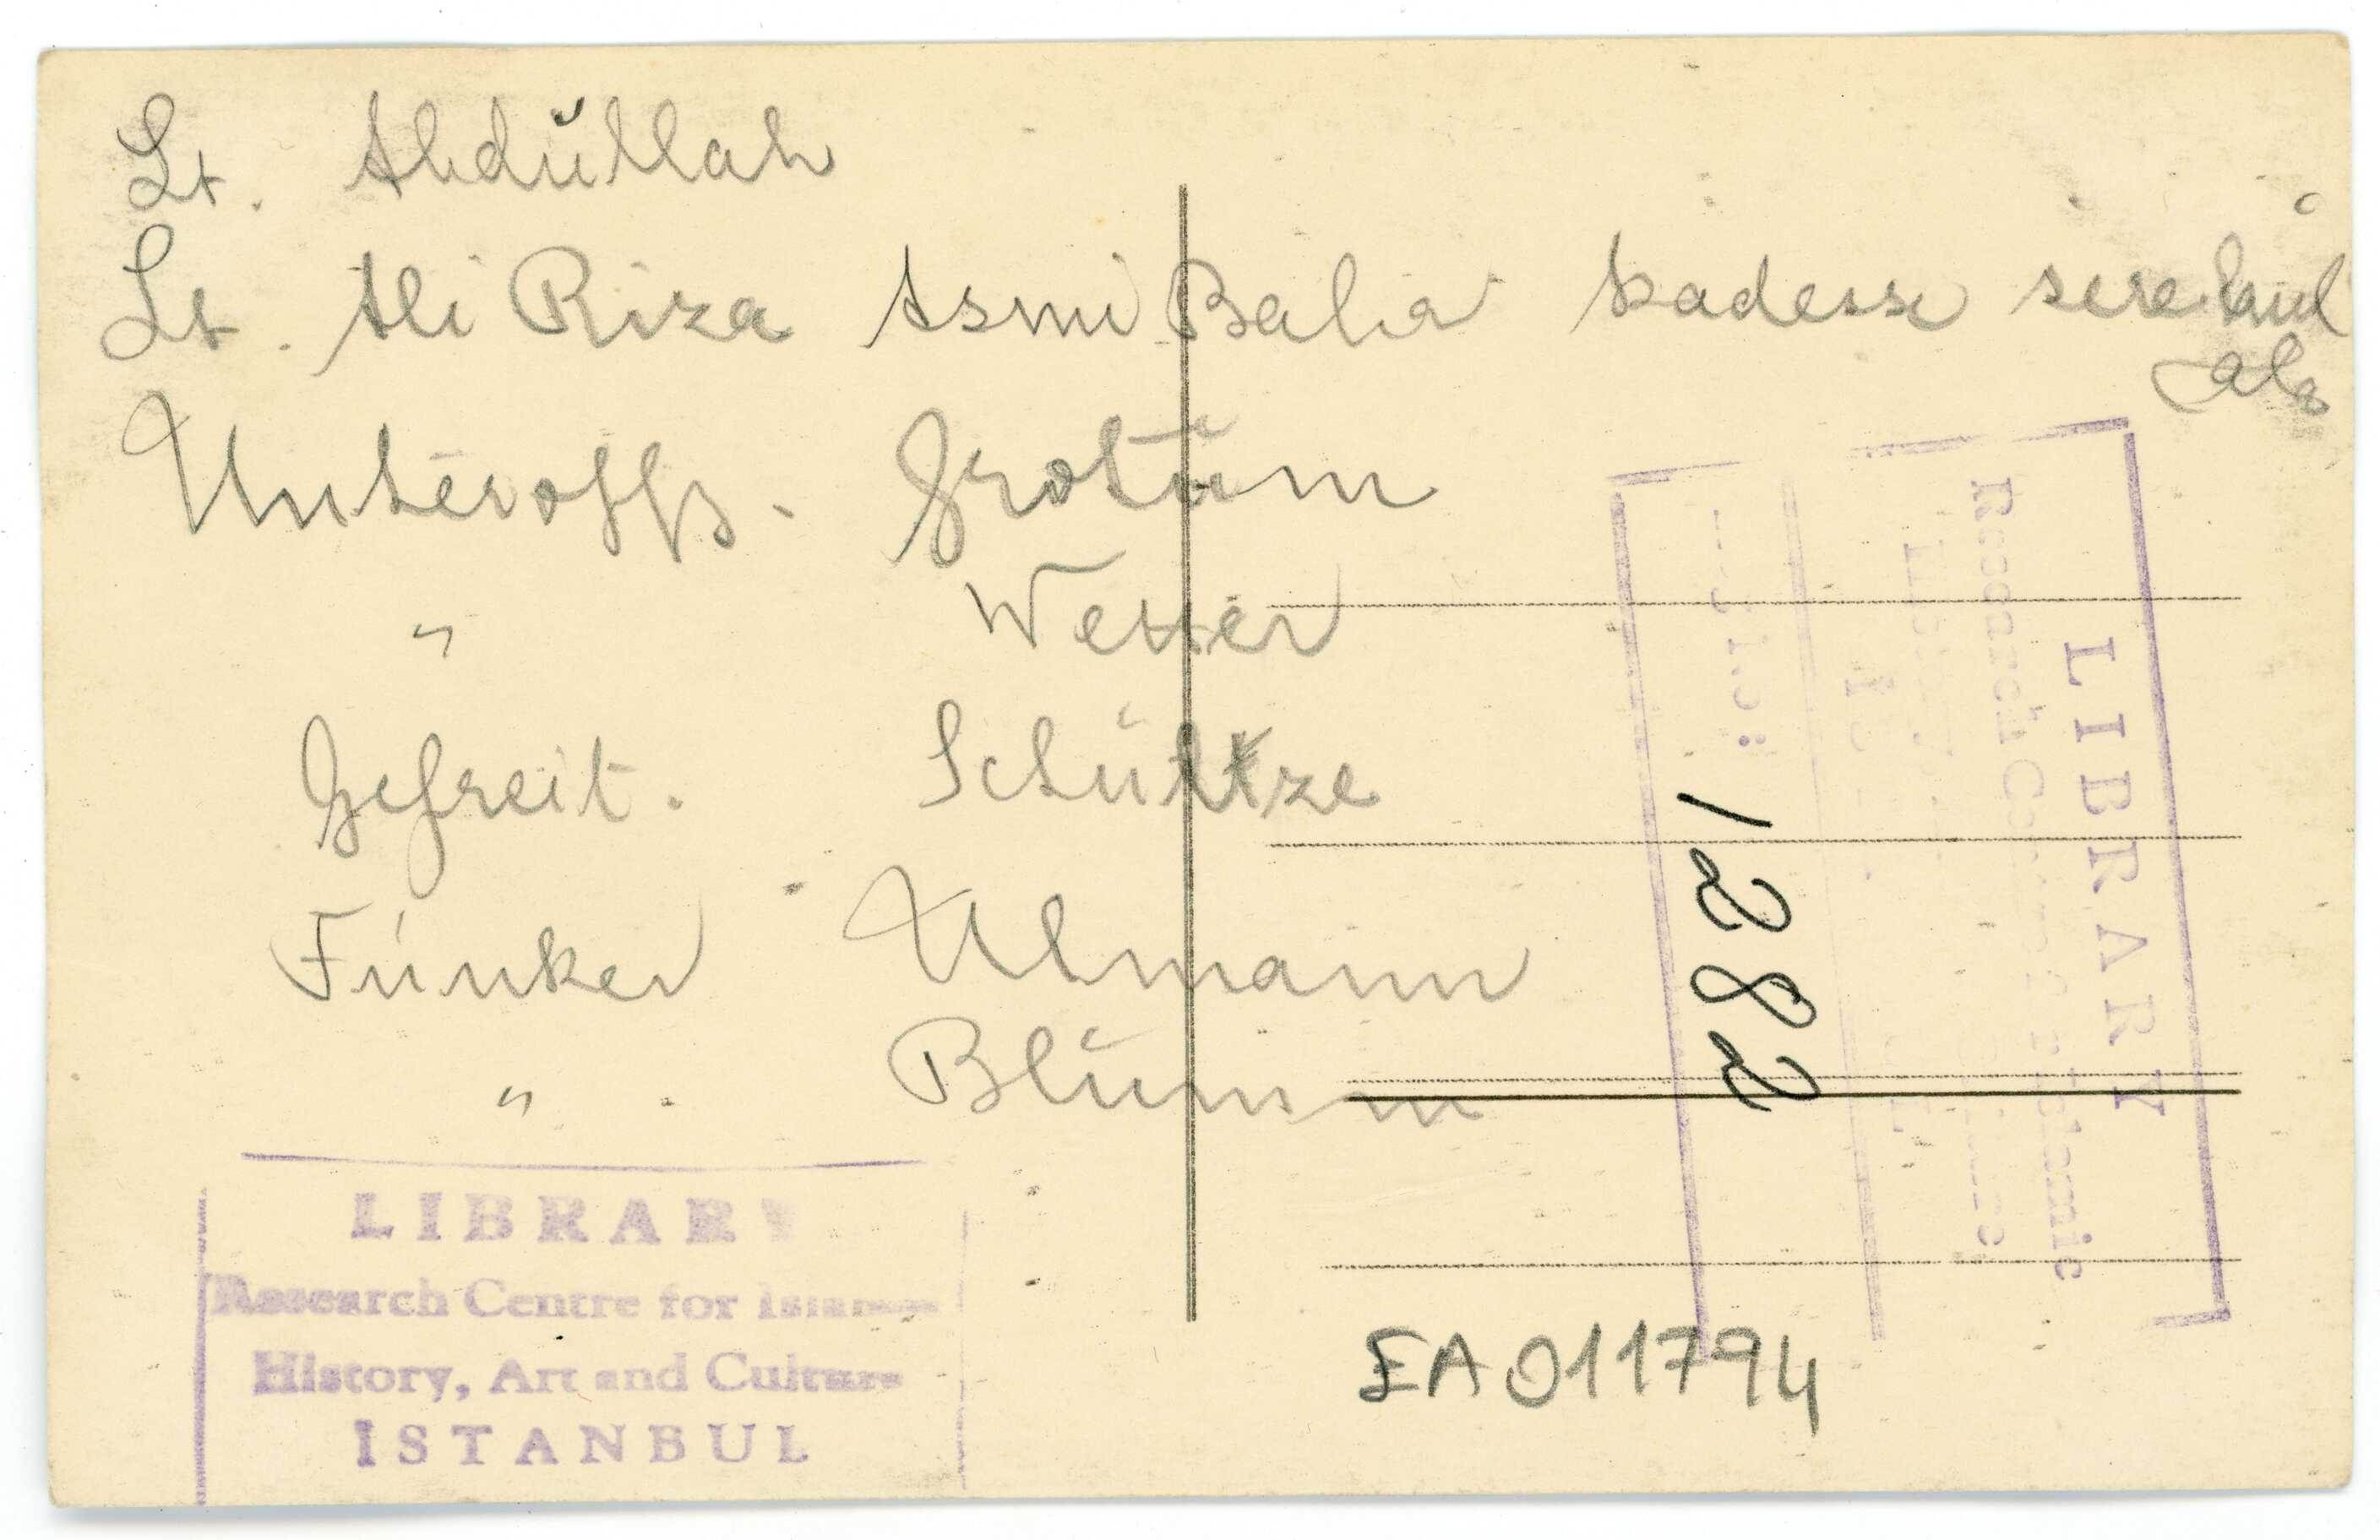 Lt. Abdŭllah
Lt. Ali Riza Asmi Baba kadesse
Unteroffz. Grotŭm
" Wetter
Gefreit. Schültze
Funker Ulmann
" . Blŭm
LIBRARY
Research Centre for Islamic
History, Art and Culture
ISTANBUL
LIBRARY
Research Centre for Islamic
1282
EA011794